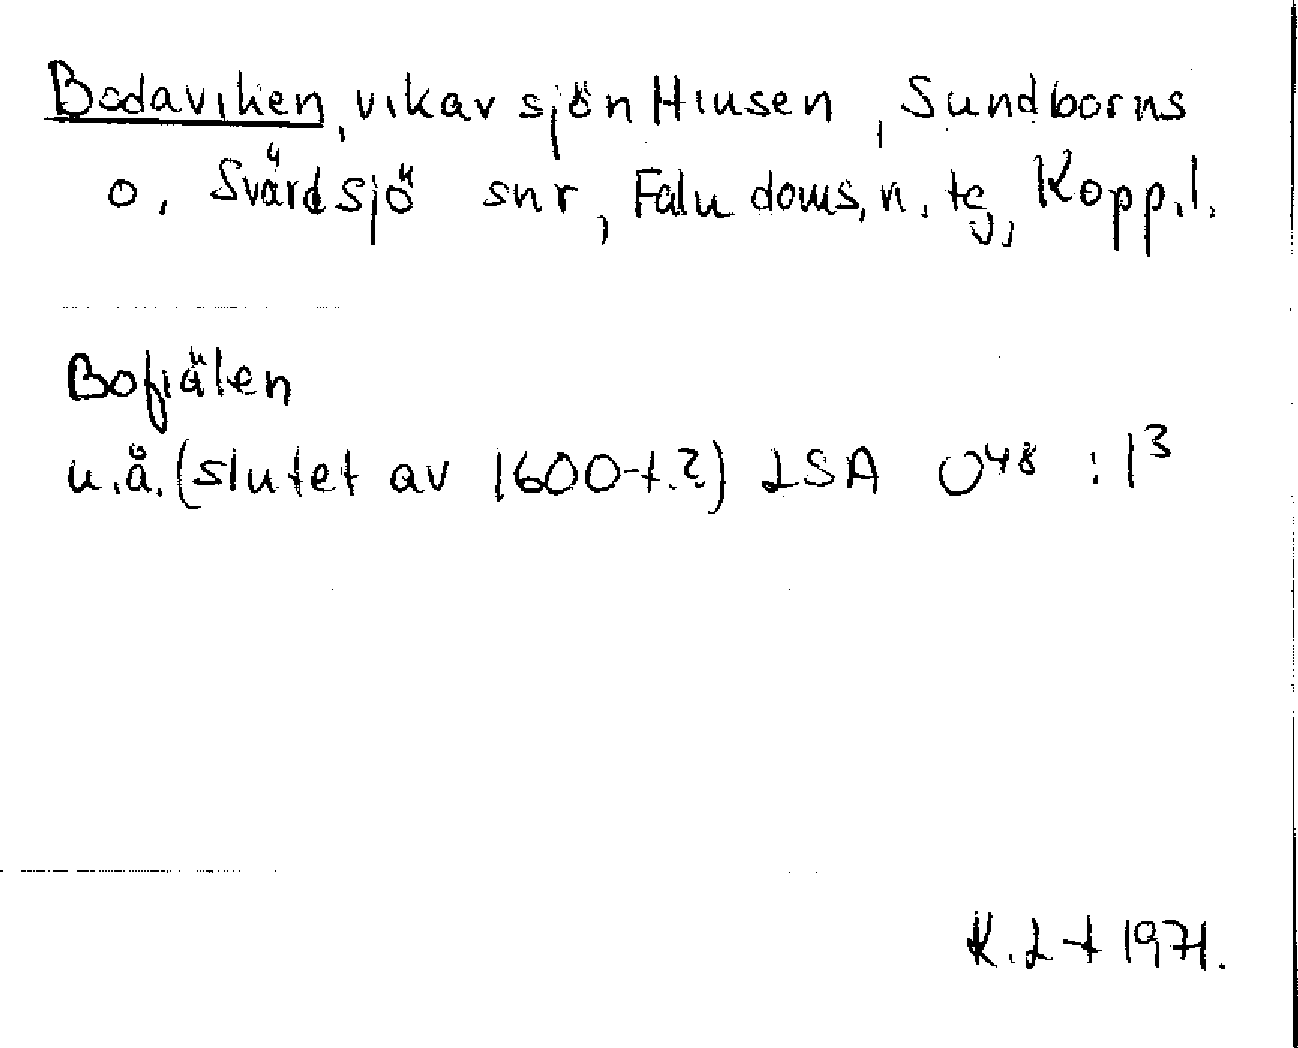 Bodaviken, vik av sjön Hiusen, Sundborns
o. Svärdsjö snr, Falu doms. n. tg, Kopp. l.
Bofjälen
u.å. (slutet av 1600-t.?) LSA O48 : 1³
K. L-t 1971.